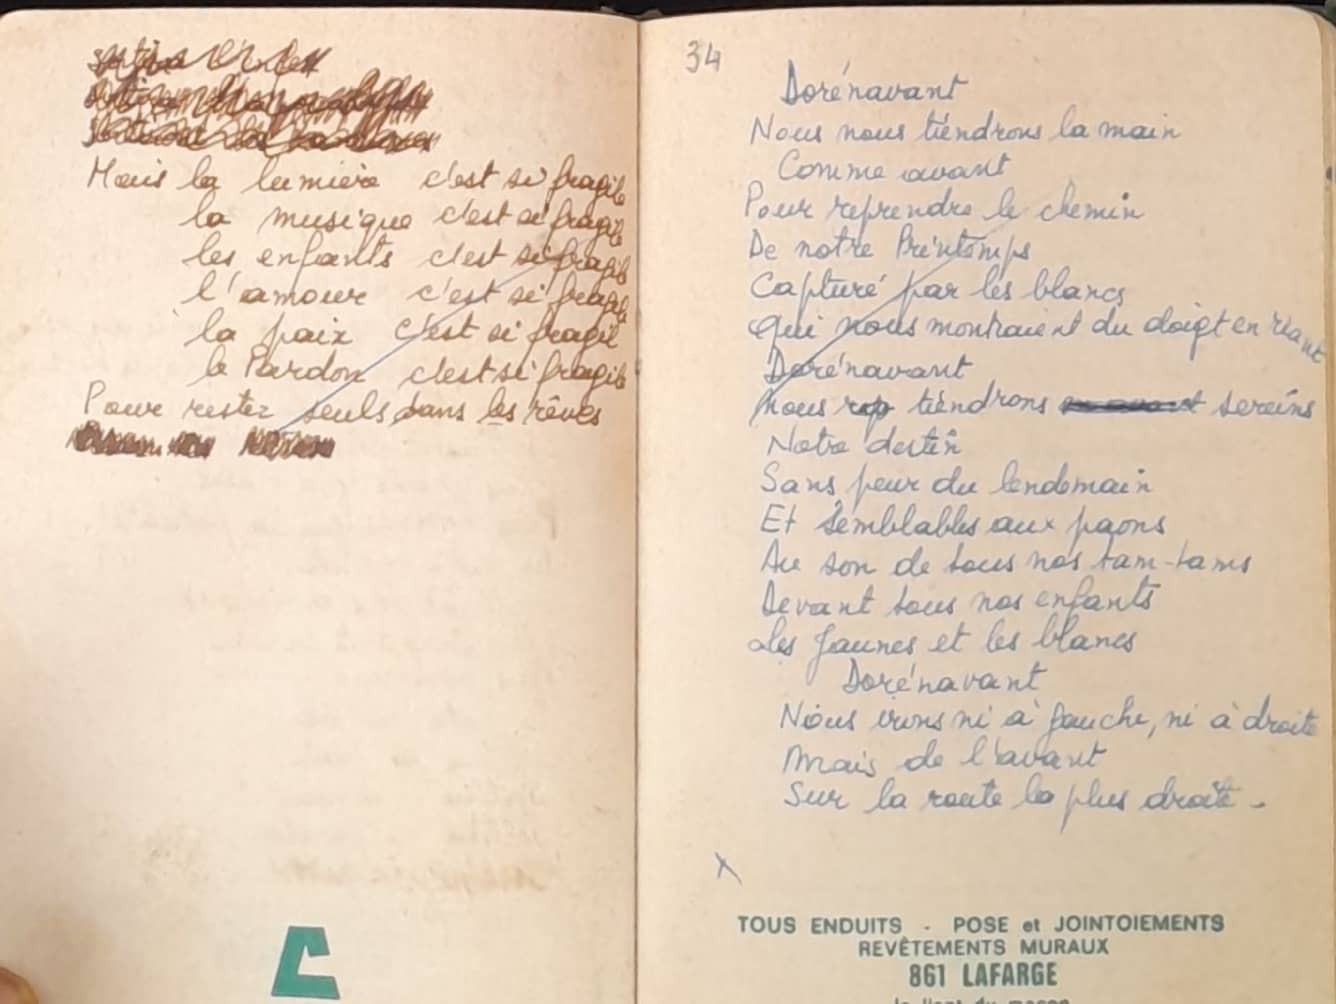 Mais la lumière c'est si fragile
la musique c'est si fragile
les enfants c'est si fragile
l'amour c'est si fragile
la paix c'est si fragil
le Pardon c'est si fragile
Pour rester seuls dans les rêves
34
Dorénavant
Nous nous tiendrons la main
Comme avant
Pour reprendre le chemin
De notre Printemps
Capturé par les blancs
Qui nous montraient du doigt en riant
Dorénavant
Nous rep tiendrons sereins
Notre destin
Sans peur du lendemain
Et semblables aux paons
Au son de tous nos tam-tams
Devant tous nos enfants
Les jaunes et les blancs
Dorénavant
Nous irons ni à gauche, ni à droite
Mais de l'avant
Sur la route la plus droite.
X
TOUS ENDUITS - POSE et JOINTOIEMENTS
REVÊTEMENTS MURAUX
861 LAFARGE